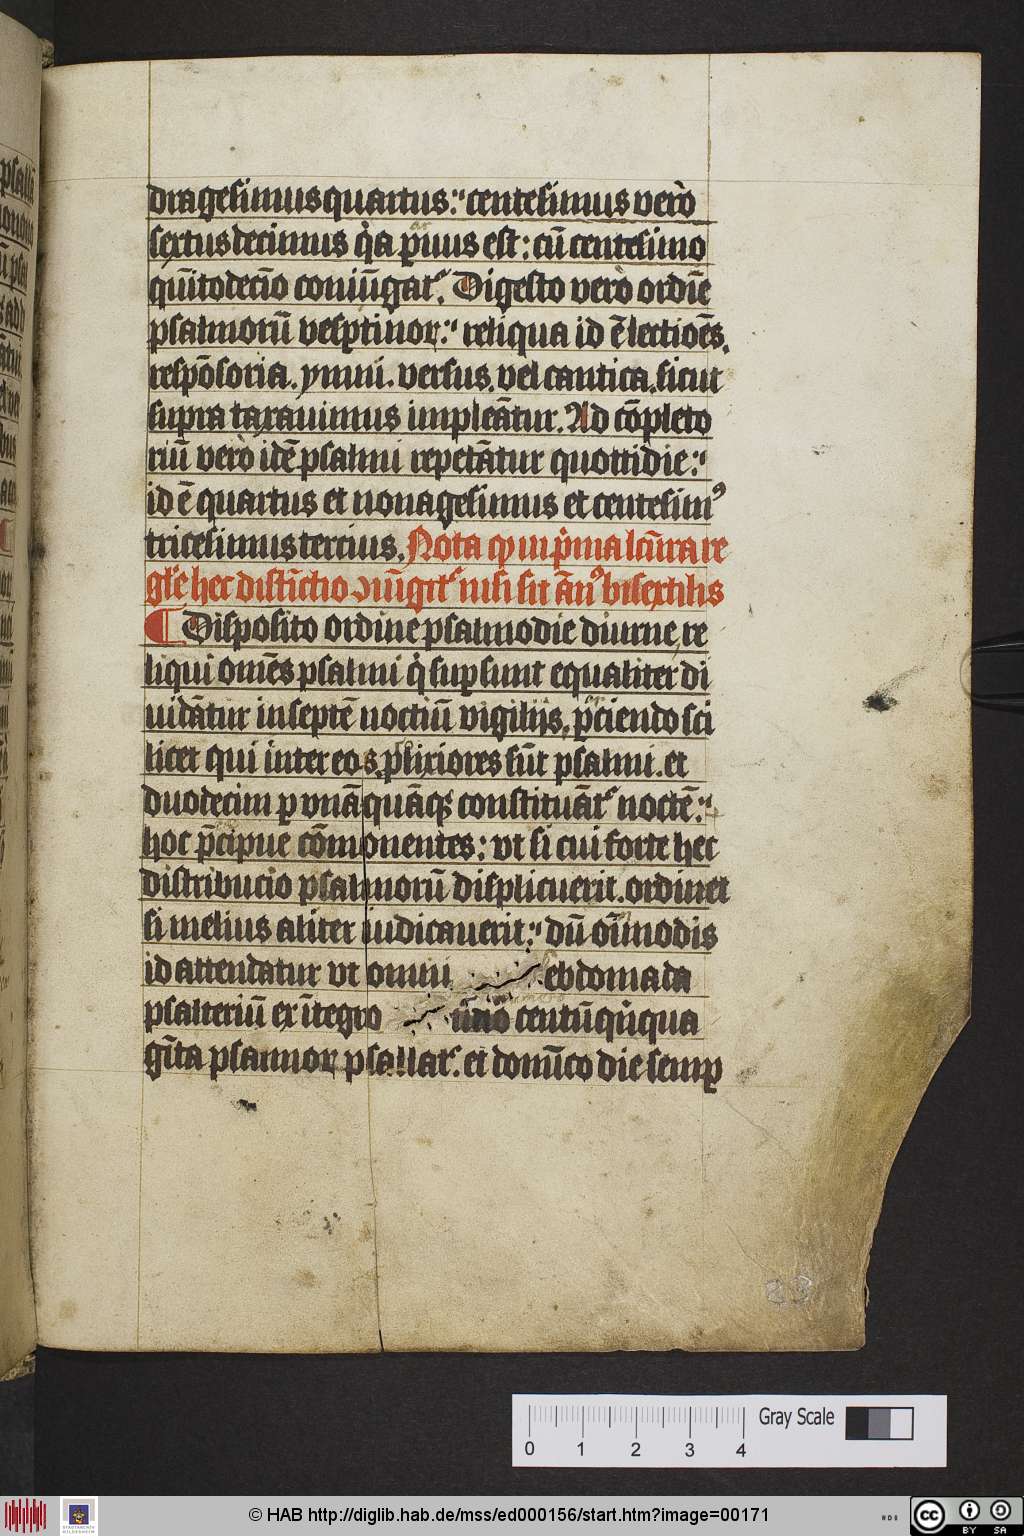 dragesimus quartus. centesimus vero
sextusdecimus q̇a ꝑuus est: cū centesimo
qūitodecīo coniūgatͬ. Digesto vero ordīe
psalmorū vesꝑtinoꝝ: reliqua id ē lectiōes,
respōsoria. ymni. versus, vel cantica. sicut
supra taxauimus impleātur. Ad cōpleto
riū vero idē psalmi repetātur quottidie:
id ē quartus et nonagesimus et centesimꝰ
tricesimustercius. Nota ꝙ in p̓ma lcūra re
gl'e hec distīctio
nisi sit ānꝰ bisextilis
Disposito ordine psalmodie diurne, re
liqui omēs psalmi q̇ suꝑsunt equaliter di
uidātur in septē noctiū vigilijs, ꝑciendo sci
licet qui inter eos, ꝓlixiores sūt psalmi. et
duodecim ꝑ vnāquāqꝫ constituātͬ noctē:
hoc p̄cipue cōmonentes: vt si cui forte hec
distribucio psalmorū displicuerit. ordinet
si melius aliter iudicauerit: dū oīmodis
id attendatur vt omni ebdomada
psalteriū ex ītegro nūo centū qīqua
gīta psalmoꝝ psallatͬ. et domīco die semꝑ
Gray Scale
0 1 2 3 4
© HAB http://diglib.hab.de/mss/ed000156/start.htm?image=00171
cc BY SA